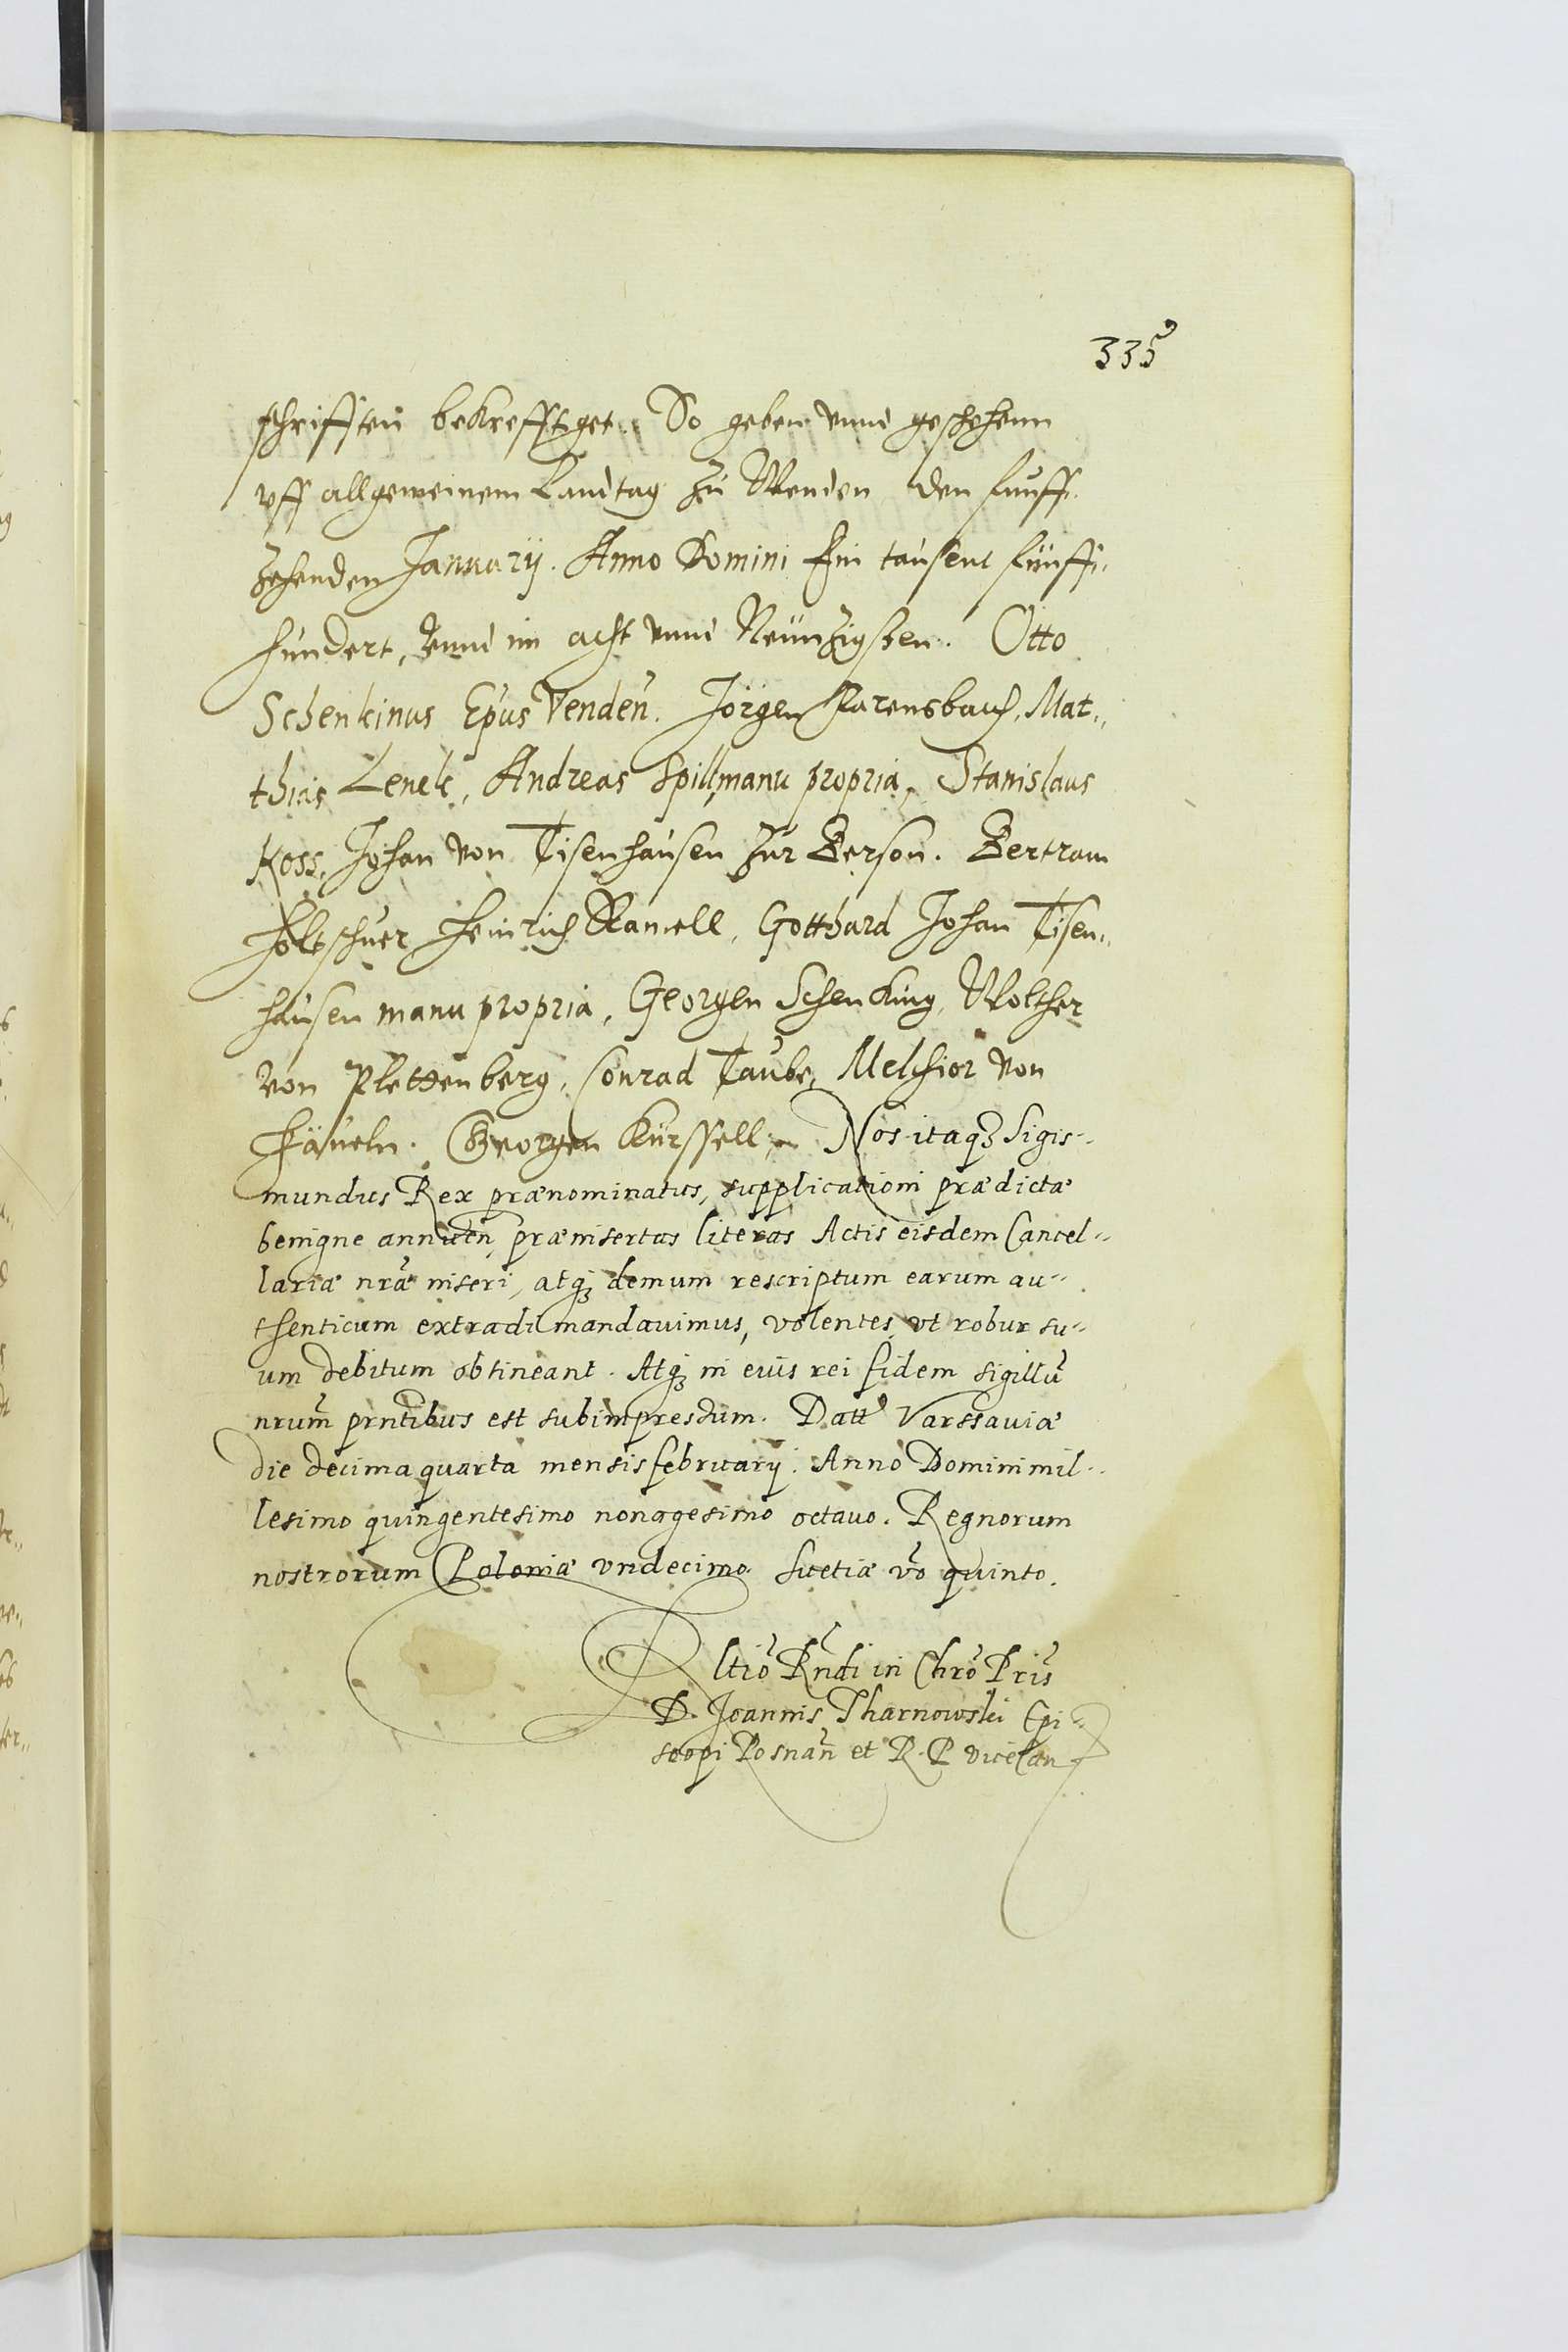 335
schrifften bekrefftget. So geben vnnd geschehenn
vff allgemeinem Landtag zu Wenden den funff
zehenden Januarij. Anno Domini Ein tausent fünff„
hundert, vnnd im acht vnnd Neünzigsten. Otto
Schenkinus Epūs Vendeñ. Jörgen Farensbach, Mat„
thias Lenek, Andreas Spill, manu propria, Stanislaus
Koss, Johan von Tisenhausen zur Berson. Bertram
Holtschuer Heinrich Ramell, Gotthard Johan Tisen„
hausen manu propria, Georgen Schenking, Wolther
von Plettenberg, Conrad Taube, Melchior von
Georgen Kürssell, Nos itaqȝ Sigis„
mundus Rex prænominatus, supplicationi prædictæ
benigne annuen, præinsertas literas Actis eisdem Cancel„
lariæ nrǣ inseri, atqȝ demum rescriptum earum au„
thenticum extradi mandauimus, volentes, vt robur su„
um debitum obtineant. Atqȝ in eius rei fidem sigillū
nrum̄ prntibus est subimpressum. Datt Varssauiæ
die decima quarta mensis februarij. Anno Domini mil„
lesimo quingentesimo nonagesimo octauo. Regnorum
nostrorum Poloniæ vndecimo Suetiæ vō quinto.
Rltiō Rndi in Chrō Pris
D. Joannis Tharnowski Epi„
scopi Posnan̄ et R. P viceCan